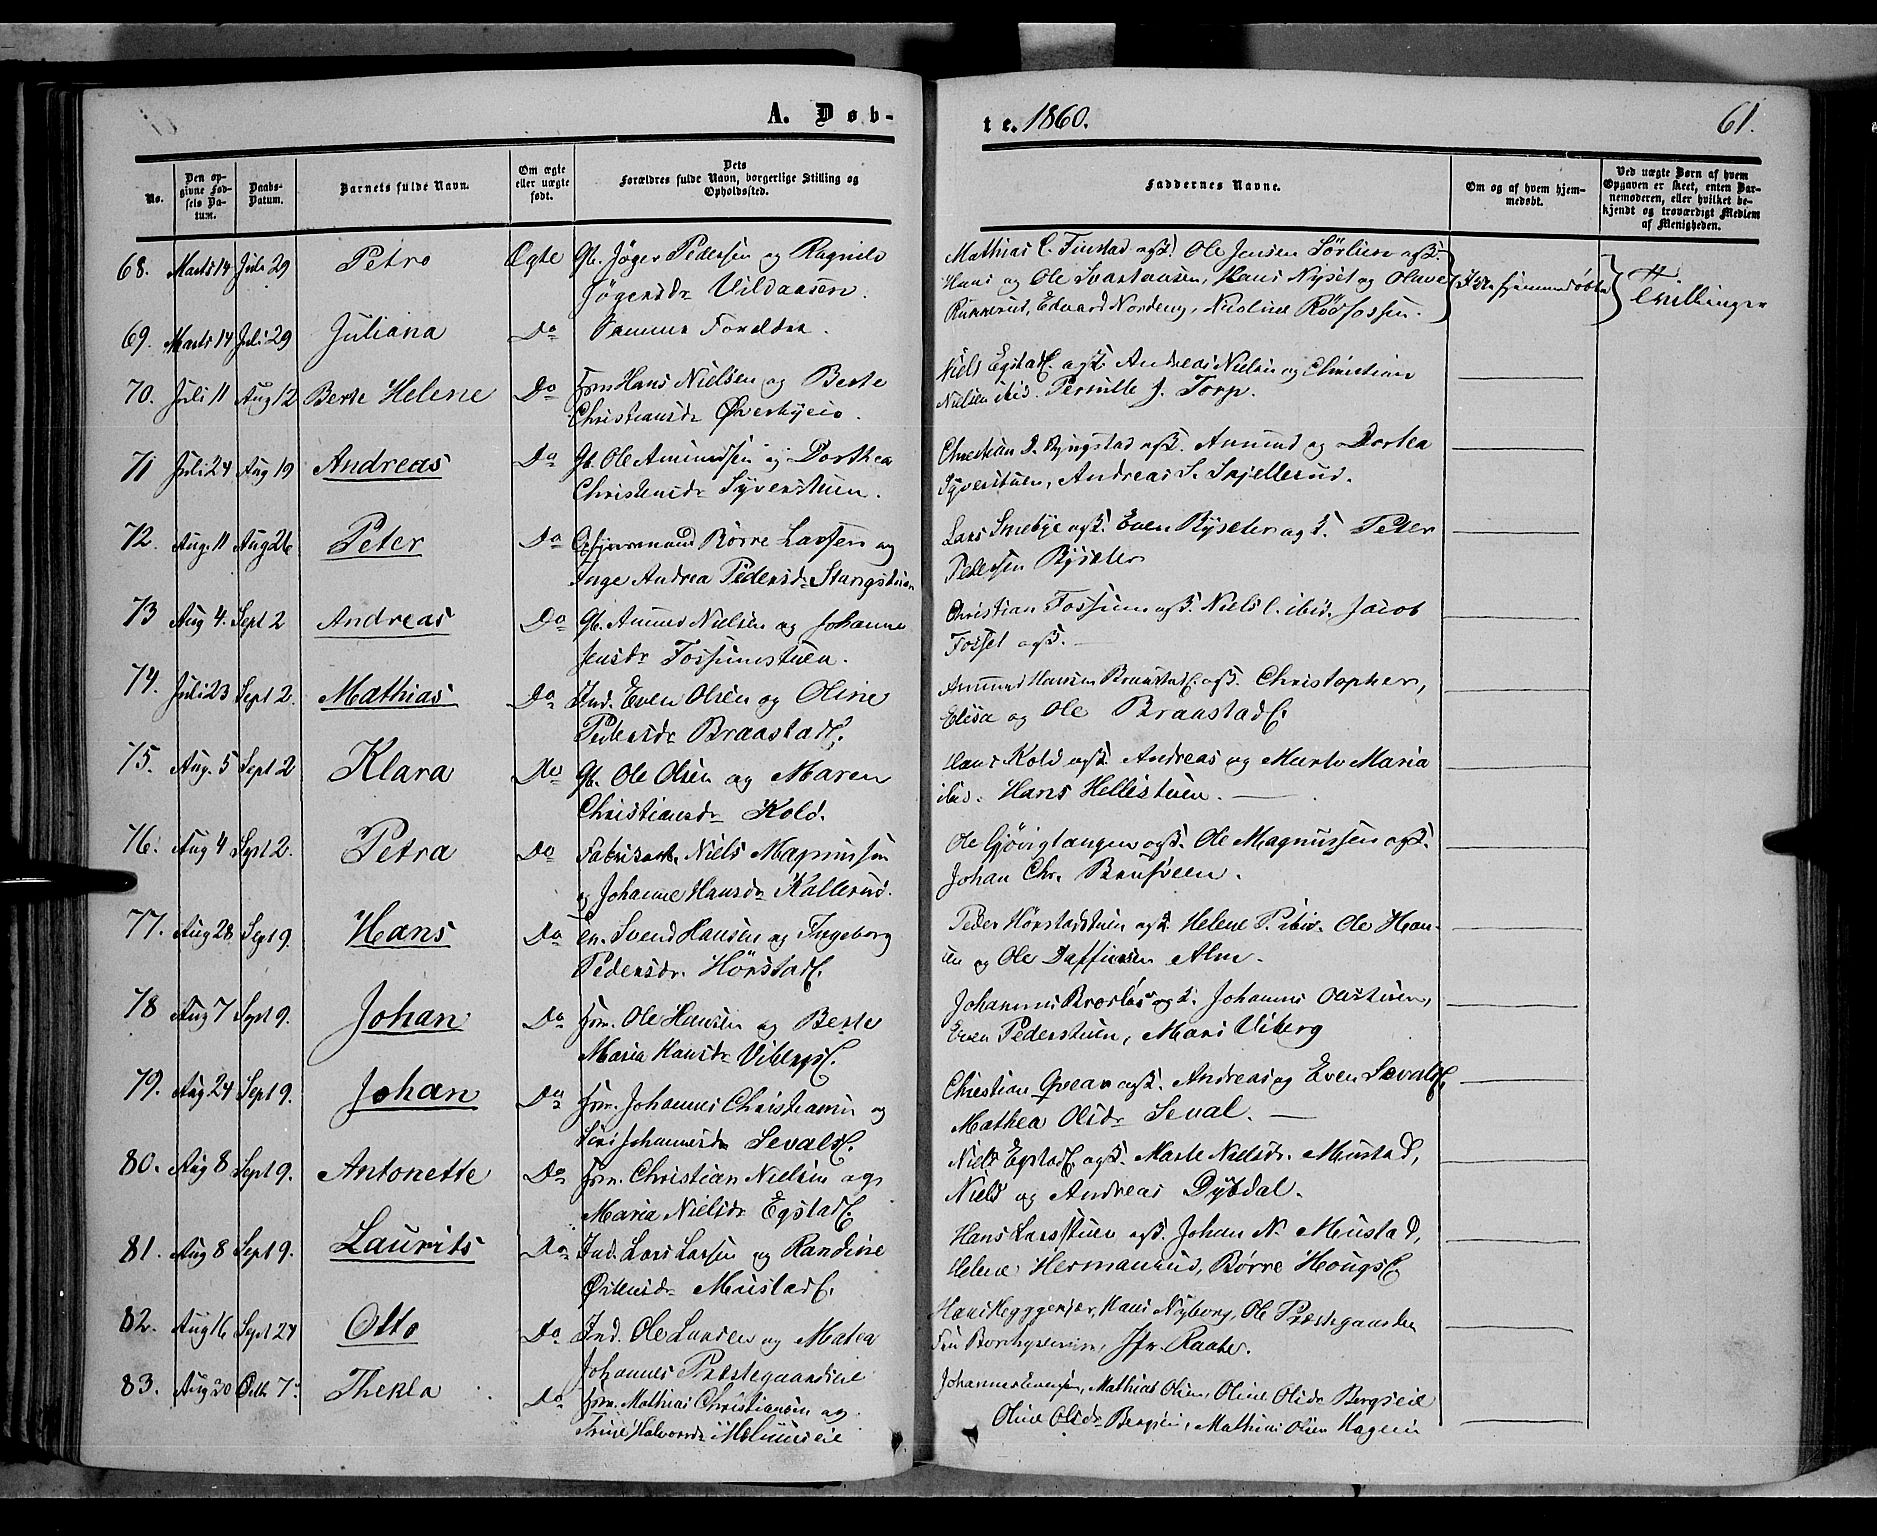 A. Døb-
te. 1860.
61.
No.
Den op-
givne Fød-
sels Da-
tum.
Daabs-
Datum.
Barnets fulde Navn.
Om ægte
eller uægte
født.
Dets
Forældres fulde Navn, borgerlige Stilling og
Opholdssted.
Faddernes Navne.
Om og af hvem hjem-
medøbt.
Ved uægte Børn af hvem
Opgaven er skeet, enten Bar-
nemoderen, eller hvilket be-
kjendt og troværdigt Medlem
af Menigheden.
68. Marts 14 Juli 29 Petro Ægte Gb. Jøger Pedersen og Ragnild
Jøgensdr Vildaasen.
Mathias C. Finstad ogst. Ole Jensen Sørlien ogst.
Hans og Ole Svartaasen, Hans Nyset og Oluve
Rukkerud, Edvard Nordeng, Nicoline Rødfossen.
hjemmedøbte
Tvillinger
69. Marts 14 Juli 29 Juliana Do Samme Forældre.
70. Juli 11 Aug 12 Berte Helene Do Frm Hans Nielsen og Berte
Christiansdr Øverbyeie.
Niels Egstad ogst. Andreas Nielsen og Christian
Nielsen ibid. Pernille J. Torp.
71 Juli 24 Aug 19 Andreas Do Gb. Ole Amundsen og Dorthea
Christensdr Syverstuen.
Christian D. Ringstad ogst. Amund og Dortea
Syverstuen, Andreas S. Snjellerud.
72. Aug. 11 Aug 26 Peter Do Børre Larsen og
Inge Andrea Pedersdr Stangstuen
Lars Smebye ogst. Even Byseter ogst. Peter
Pedersen Byseter
73 Aug 4. Sept 2 Andreas Do Gb. Amund Nielsen og Johanne
Jensdr Fossumstuen.
Christian Fossum ogst. Niels C. ibid. Jacob
Fosset ogst.
74. Juli 23 Sept 2. Mathias Do Ind. Even Olsen og Oline
Pedersdr Braastad.
Amund Hansen Braastad ogst. Christopher,
Elisa og Ole Braastad.
75. Aug. 5 Sept 2 Klara Do Gb. Ole Olsen og Maren
Christiansdr Kold.
Hans Kold ogst. Andreas og Marte Maria
ibid. Hans Hellistuen.
76. Aug 4 Sept 2. Petra Do Niels Magnussen
og Johanne Hansdr Kallerud.
Ole Gjøvigtangen ogst. Ole Magnussen ogst.
Johan Chr. Brufveen.
77. Aug 28 Sept 9. Hans Do Svend Hansen og Ingeborg
Pedersdr. Hørstad.
Peder Hørstadstuen ogst. Helene P. ibid. Ole Han-
sen og Ole Daffinsen Alm.
78 Aug 7 Sept 9. Johan Do Frm. Ole Hansen og Berte
Maria Hansdr Viberg.
Johannes ogst. Johannes Olastuen,
Even Pederstuen, Mari Viberg
79. Aug 24 Sept 9. Johan Do Frm. Johannes Christiansen og
Siri Johannesdr Sevals.
Christian Qvean ogst. Andreas og Even Seval
Mathea Olsdr Seval.
80. Aug 8 Sept 9. Antonette Do Frm. Christian Nielsen og
Maria Nielsdr Egstad.
Niels Egstad ogst. Marte Nielsdr. Mustad,
Niels og Andreas Dybdal.
81. Aug 8 Sept 9. Laurits Do Ind. Lars Larsen og Randine
Østensdr Mustad.
Hans Larsstuen ogst. Johan N. Mustad,
Helene Hermanrud, Børre Hougs
82. Aug 16 Sept 24 Otto Do Ind. Ole Larsen og Matea
Johannes Præstegaardseie
Hans Heggenjær, Hans Nyborg, Ole Præstegaarden
Fru Jfr. Raabe.
83. Aug 20 Octb 7. Thekla Do Frm. Mathias Christiansen og
Trine Halvorsdr
Johannes Evensen, Mathias Olsen, Oline Olsdr Bergseie
Oline Olsdr Bergseie, Mathias Olsen Hageie